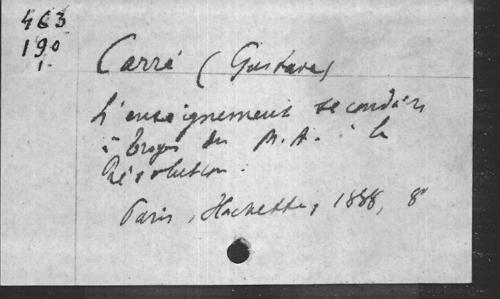 463
190
1.
Carré (Gustave)
L'enseignement secondaire
à Troyes du M.A. à la
Révolution.
Paris, Hachette, 1888, 8°